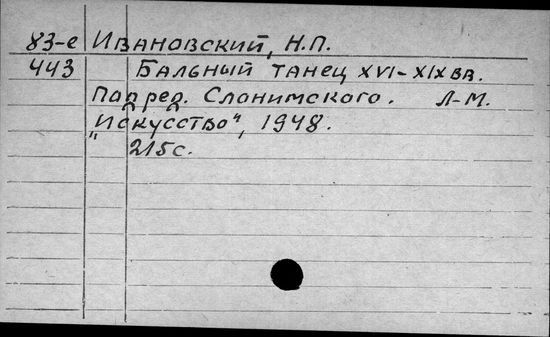 83-е Ивановский, Н.П.
443 Бальный танец XVI-XIX вв.
Под ред. Слонимского. Л-М.
"Искусство", 1948.
215с.